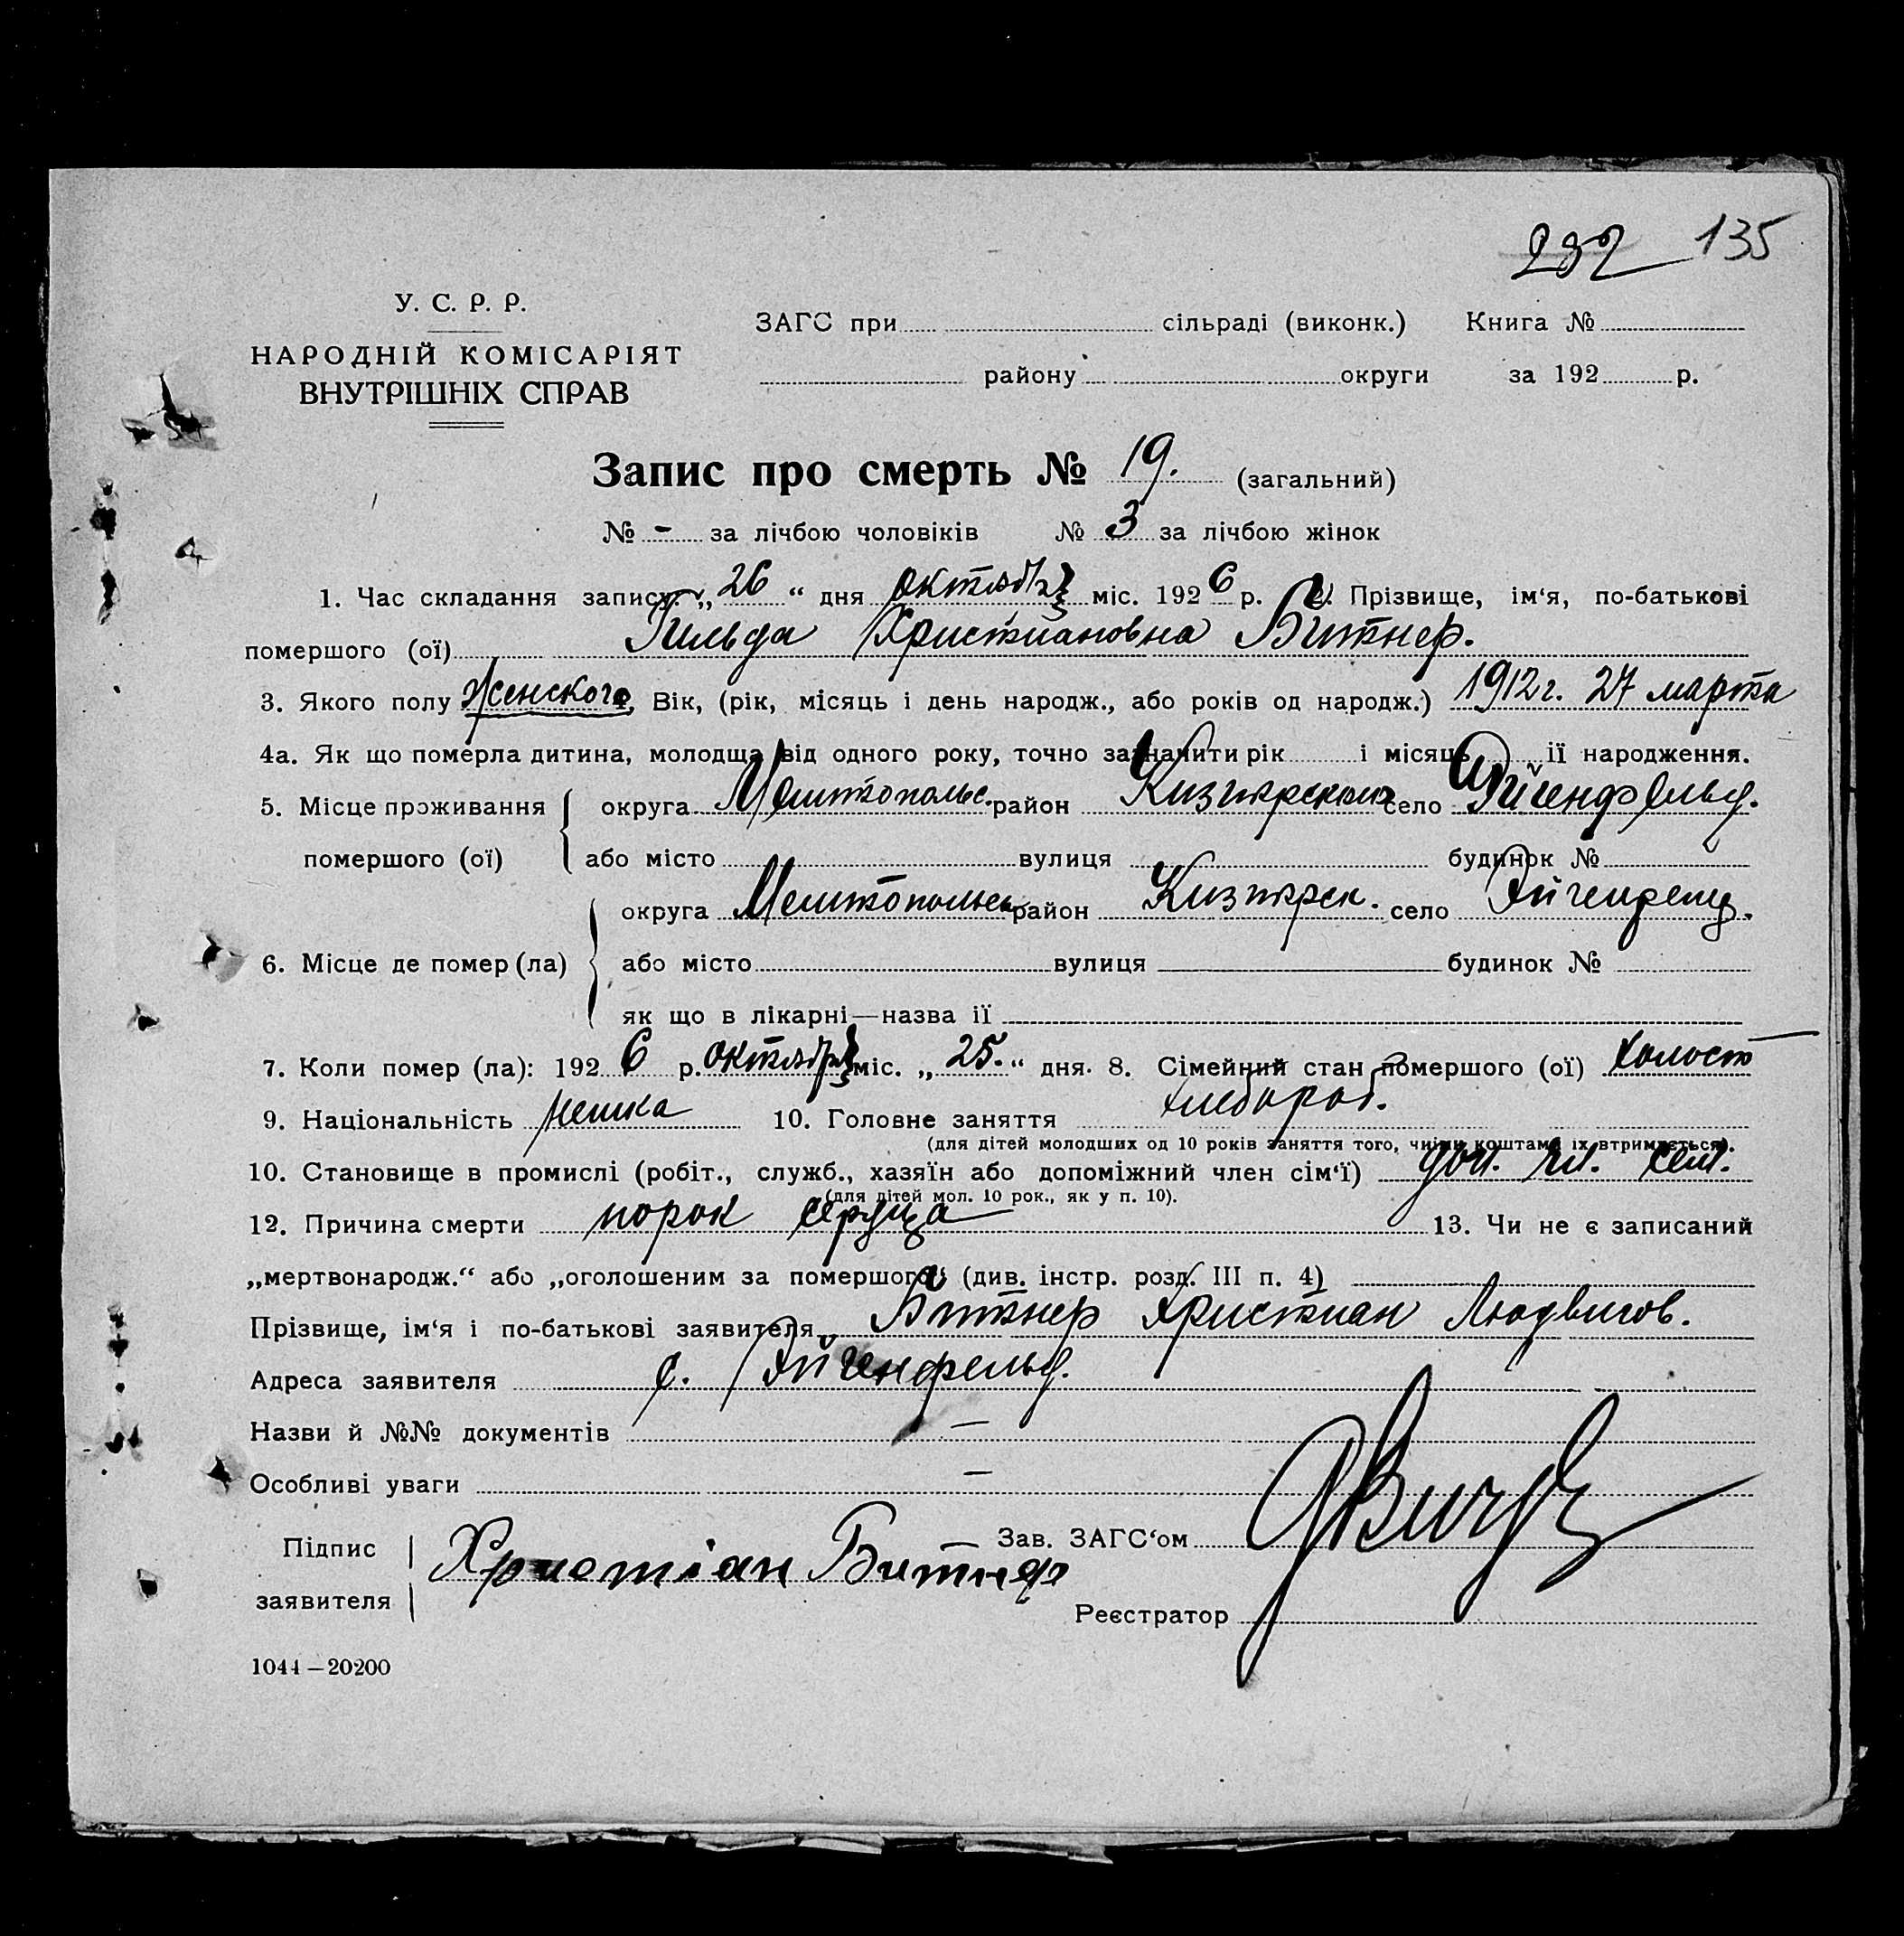 232 135
У. С. Р. Р.
НАРОДНІЙ КОМІСАРІЯТ
ВНУТРІШНІХ СПРАВ
ЗАГС при сільраді (виконк.) Книга №
району округи за 192 р.
Запис про смерть № 19. (загальний)
№ - за лічбою чоловіків № 3 за лічбою жінок
1. Час складання запису: „26“ дня октября міс. 1926 р. 2. Прізвище, ім‘я, по-батькові
помершого (ої) Гильда Христиановна Битнер.
3. Якого полу Женского, Вік, (рік, місяць і день народж., або років од народж.) 1912 г. 27 марта
4а. Як що померла дитина, молодща від одного року, точно зазначити рік і місяць її народження.
5. Місце проживання округа Мелитопольс. район Кизиярский село Эйгенфельд.
помершого (ої) або місто вулиця будинок №
округа Мелитопольск район Кизиярск. село Эйгенфельд.
6. Місце де помер (ла) або місто вулиця будинок №
як що в лікарні—назва її
7. Коли помер (ла): 1926 р. октября міс. „25.“ дня. 8. Сімейний стан помершого (ої) холост
9. Національність немка 10. Головне заняття хлебороб.
(для дітей молодших од 10 років заняття того, чиїми коштами їх втримується).
10. Становище в промислі (робіт., служб., хазяїн або допоміжний член сім‘ї) доп. чл. сем.
(для дітей мол. 10 рок., як у п. 10).
12. Причина смерти порок сердца 13. Чи не є записаний
„мертвонародж.“ або „оголошеним за помершого“ (див. інстр. розд. III п. 4)
Прізвище, ім‘я і по-батькові заявителя Битнер Христиан Людвигов.
Адреса заявителя с. Эйгенфельд.
Назви й №№ документів —
Особливі уваги —
Підпис
заявителя Християн Битнер
Зав. ЗАГС‘ом
Реєстратор
1044—20200